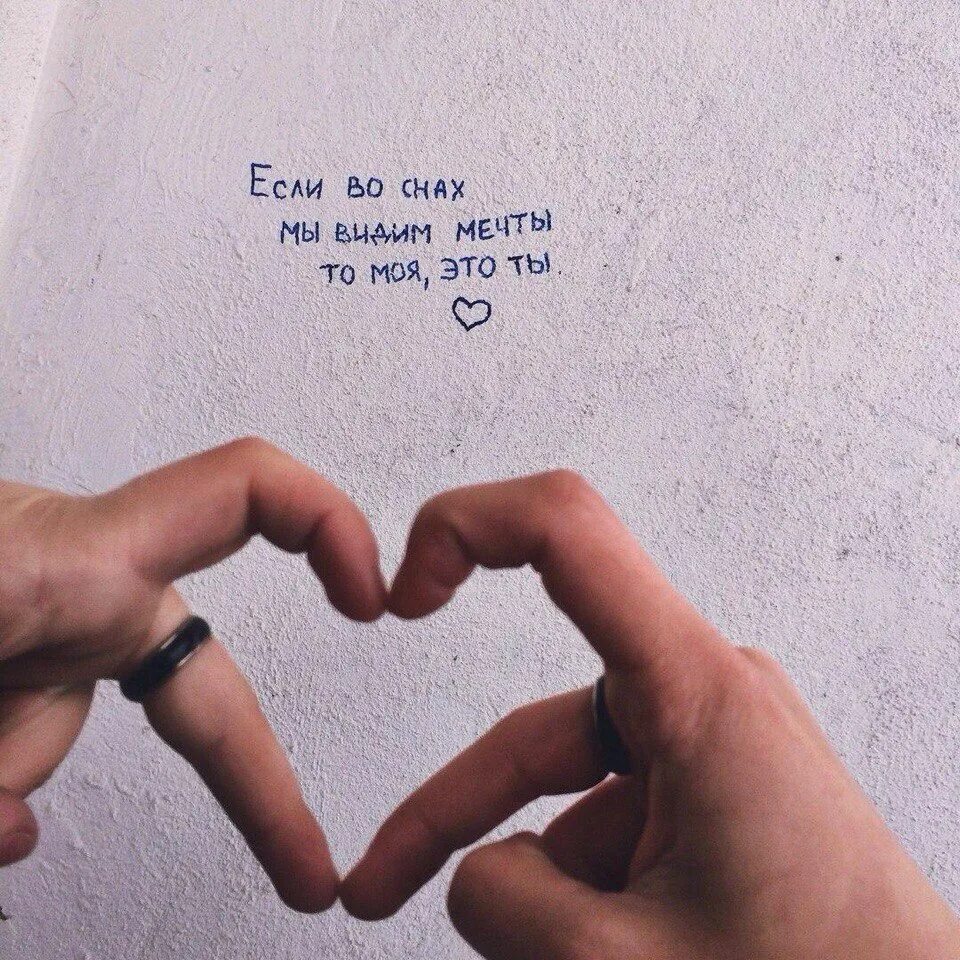 Если во снах
мы видим мечты
то моя, это ты.